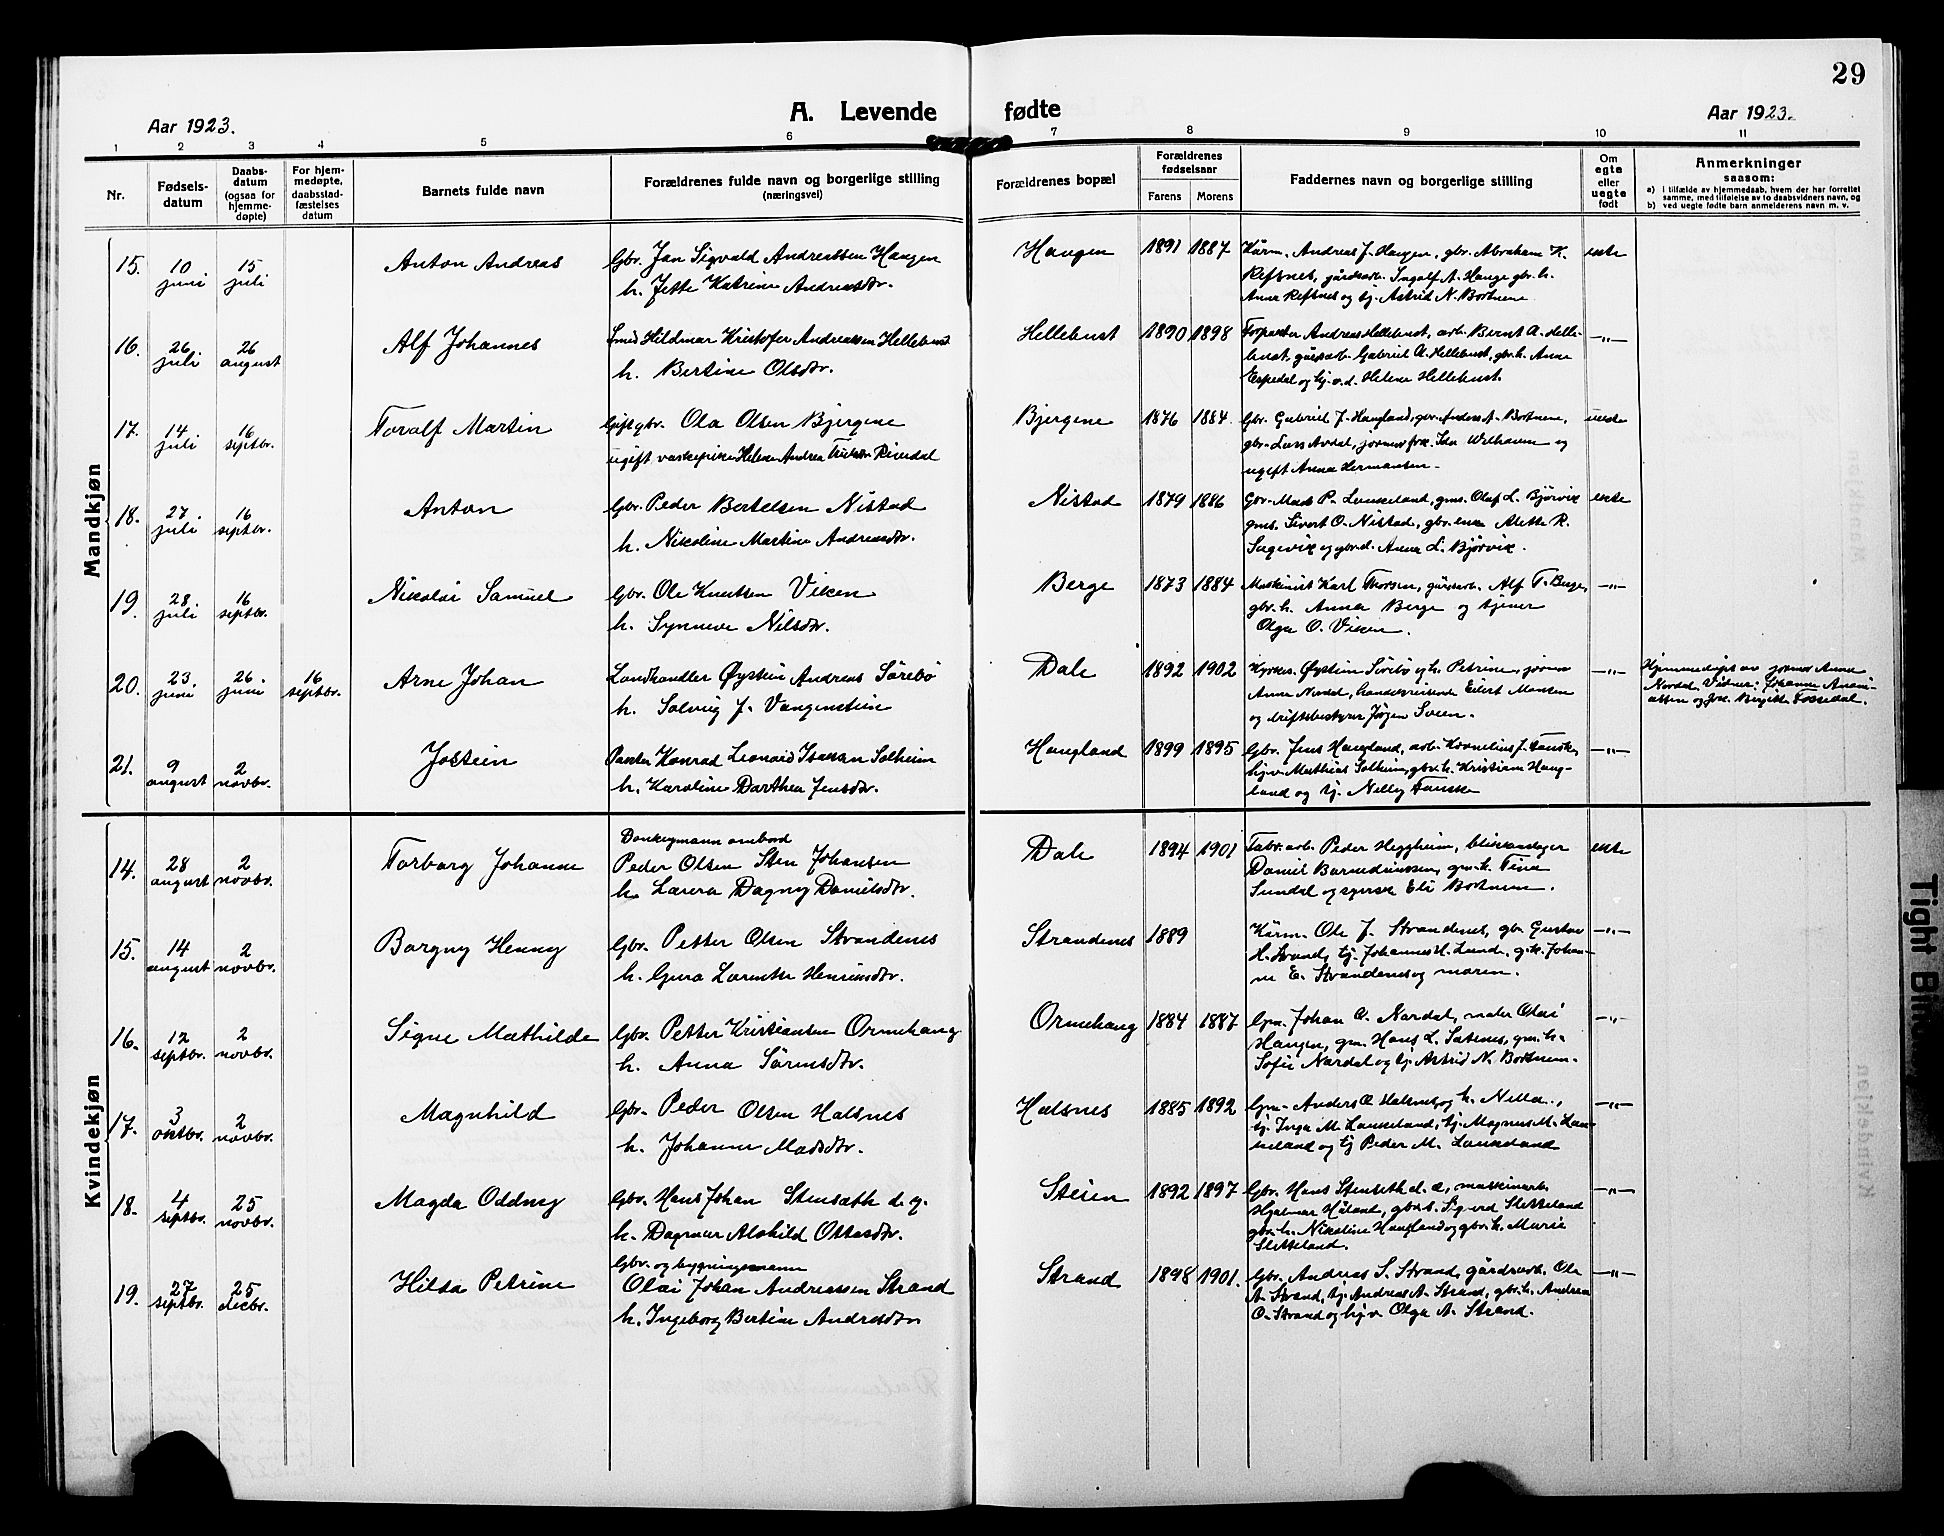 29
A. Levende fødte
Aar 1923.
Aar 1923.
1 2 3 4 5 6 7 8 9 10 11
Nr.
Fødsels-
datum
Daabs-
datum
(ogsaa for
hjemme-
døpte)
For hjem-
medøpte,
daabsstad-
fæstelses
datum
Barnets fulde navn
Forældrenes fulde navn og borgerlige stilling
(næringsvei)
Forældrenes bopæl
Forældrenes
fødselsaar
Farens Morens
Faddernes navn og borgerlige stilling
Om
egte
eller
uegte
født
Anmerkninger
saasom:
a) i tilfælde av hjemmedaab, hvem der har forrettet
samme, med tilføielse av to daabsvidners navn, og
b) ved uegte fødte barn anmelderens navn m. v.
Mandkjøn
15. 10 juni 15 juli Anton Andreas
Gbr. Jan Sigvald Andreassen Haugen
h. Jette Katrine Andreasdr.
Haugen 1891 1887
Kirm. Andreas J. Haugen, gbr. Abraham K.
Refsnes, gårdsarb. Ingolf A. Hauge gbr. h.
Anna Refsnes og tj. Astrid N. Bortnem
ekte
16. 26 juli 26 august Alf Johannes
Smed Hildmar Kristofer Andreassen Hellebust
h. Bertine Olsdr.
Hellebust 1890 1898
Forpakter Andreas Hellebust, arb. Bernt A. Helle-
bust, gårdsarb. Gabriel A. Hellebust, gbr. h. Anna
Espedal og tj. v. d. Helene Hellebust.
—„—
17. 14 juli 16 septbr. Toralf Martin
Gift gbr. Ola Olsen Bjergene
ugift vaskepike Helene Andrea Rivedal
Bjergene 1876 1884
Gbr. Gabriel J. Haugland, gbr. Anders A. Bortnem,
gbr. Lars Avdal, jormorfrk. Ida Welhaven og
ugift Anna Hermansen.
uekte
18. 27 juli 16 septbr. Anton
Gbr. Peder Bertelsen Nistad
h. Nikoline Martine Andreasdr.
Nistad 1879 1886
Gbr. Mads P. Laukeland, gms. Olaf L. Bjørvik
gms. Sivert O. Nistad, gbr. enke Alette R.
Sagevik og gbr. d. Anna L. Bjørvik.
ekte
19. 28 juli 16 septbr. Nikolai Samuel
Gbr. Ole Knutsen Viken
h. Synneve Nilsdr.
Berge 1873 1884
Maskinist Karl Thorsen, gårdsarb. Alf T. Berge,
gbr. h. Anna Berge og tjener
Olga O. Viken.
—„—
20. 23 juni 26 juni 16 septbr. Arne Johan
Landhandler Øystein Andreas Sørebø
h. Solveig J. Vangenstein
Dale 1892 1902
Kirkes. Øystein Sørebø og h. Petrine, jormor
Anna Nordal, handelsreisende Eilert Monsen
og driftsbestyrer Jørgen Sveen.
—„—
Hjemmedøpt av jormor Anna
Nordal. Vidner: Johanne
og frk. Birgitte Fossedal.
21. 9 august 2 novbr. Jostein
Konrad Leonard Isaksen Solheim
h. Karoline Dorthea Jensdr.
Haugland 1899 1895
Gbr. Jens Haugland, arb. Kornelius J. Fanske,
Mathias Solheim, gbr. h. Kristine Haug-
land og tj. Nelly Fanske
—„—
Kvindekjøn
14. 28 august 2 novbr. Torborg Johanne
Donkeymann ombord
Peder Olsen Sten Johansen
h. Laura Dagny Danielsdr.
Dale 1894 1901
Fabr. arb. Peder Heggheim,
Daniel gm. h. Tina
Sundal og syerske Eli Bortnem.
ekte
15. 14 august 2 novbr. Borgny Henny
Gbr. Petter Olsen Strandenes
h. Gura Larentse Henriksdr.
Strandenes 1889
Kirm. Ole J. Strandenes, gbr. Gustav
H. Strand, tj. Johannes H. Lunde, g. h. Johan-
ne E. Strandenes og moren.
—„—
16. 12 septbr. 2 novbr. Signe Mathilde
Gbr. Petter Kristiansen Ormehaug
h. Anna Sørensdr.
Ormehaug 1884 1887
Gm. Johan O. Nordal, maler Olai
Haugen, gm. Hans L. Sætenes, gm. h.
Sofie Nordal og tj. Astrid N. Bortnem.
—„—
17. 3 oktbr. 2 novbr. Magnhild
Gbr. Peder Olsen Halsnes
h. Johanne Madsdr.
Halsnes 1885 1892
Gm. Anders O. Halsnes og h. Nilla,
tj. Inga M. Laukeland, tj. Magnus M. Lau-
keland og tj Peder M. Laukeland
—„—
18. 4 septbr. 25 novbr. Magda Oddny
Gbr. Hans Johan Stensæth d. y.
h. Dagmar Alshild Ottosdr.
Steien 1892 1897
Gbr. Hans Stenseth d. e., maskinarb.
Hjalmar Høland, gbr. s. Sigurd Sletteland
gbr. h. Nikoline Haugland og gbr. h. Marie
Sletteland.
—„—
19. 27 septbr. 25 decbr. Hilda Petrine
Gbr. og bygningsmann
Olai Johan Andreassen Strand
h. Ingeborg Bertine Andreasdr.
Strand 1898 1901.
Gbr. Andreas S. Strand, gårdsarb. Ole
A. Strand, tj. Andreas A. Strand, gbr. h. Andrea
O. Strand og hj. v. Olga A. Strand.
—„—
Tight Bin